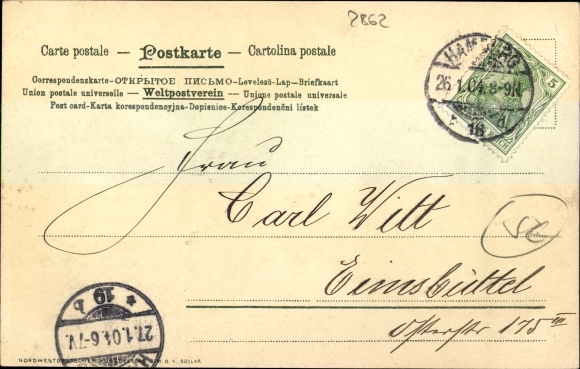 2862
Carte postale — Postkarte — Cartolina postale
Correspondenzkarte-ОТКРЫТОЕ ПИСЬМО-Levelezö-Lap-Briefkaart
Union postale universelle — Weltpostverein — Unione postale universale
Post card-Karta korespondencyjna-Dopisnice-Korespondenční lístek
HAMBURG
26.1.04. 8-9N.
16
5
Frau
Carl Witt
Eimsbüttel
Osterstr 175 III
52
* 19 b *
27.1.04. 6-7V.